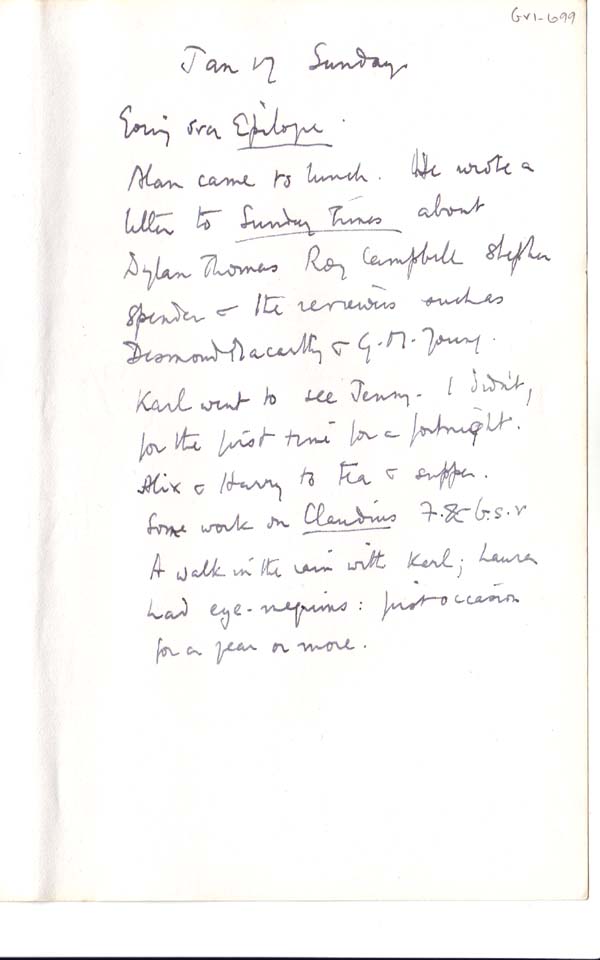 GV1-699
Jan 17 Sunday
Going over Epilogue.
Alan came to lunch. He wrote a
letter to Sunday Times about
Dylan Thomas Roy Campbell Stephen
Spender & the reviewers such as
Desmond Macarthy & G.M. Young.
Karl went to see Jenny. I didn't,
for the first time for a fortnight.
Alix & Harry to tea & supper.
Some work on Claudius
A walk in the rain with Karl; Laura
had eye-megrims: first occasion
for a year or more.